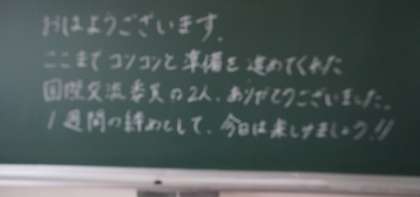 おはようございます。
ここまでコツコツと準備を進めてくれた
国際交流委員の2人、ありがとうございました。
1週間の締めとして、今日は楽しみましょう!!